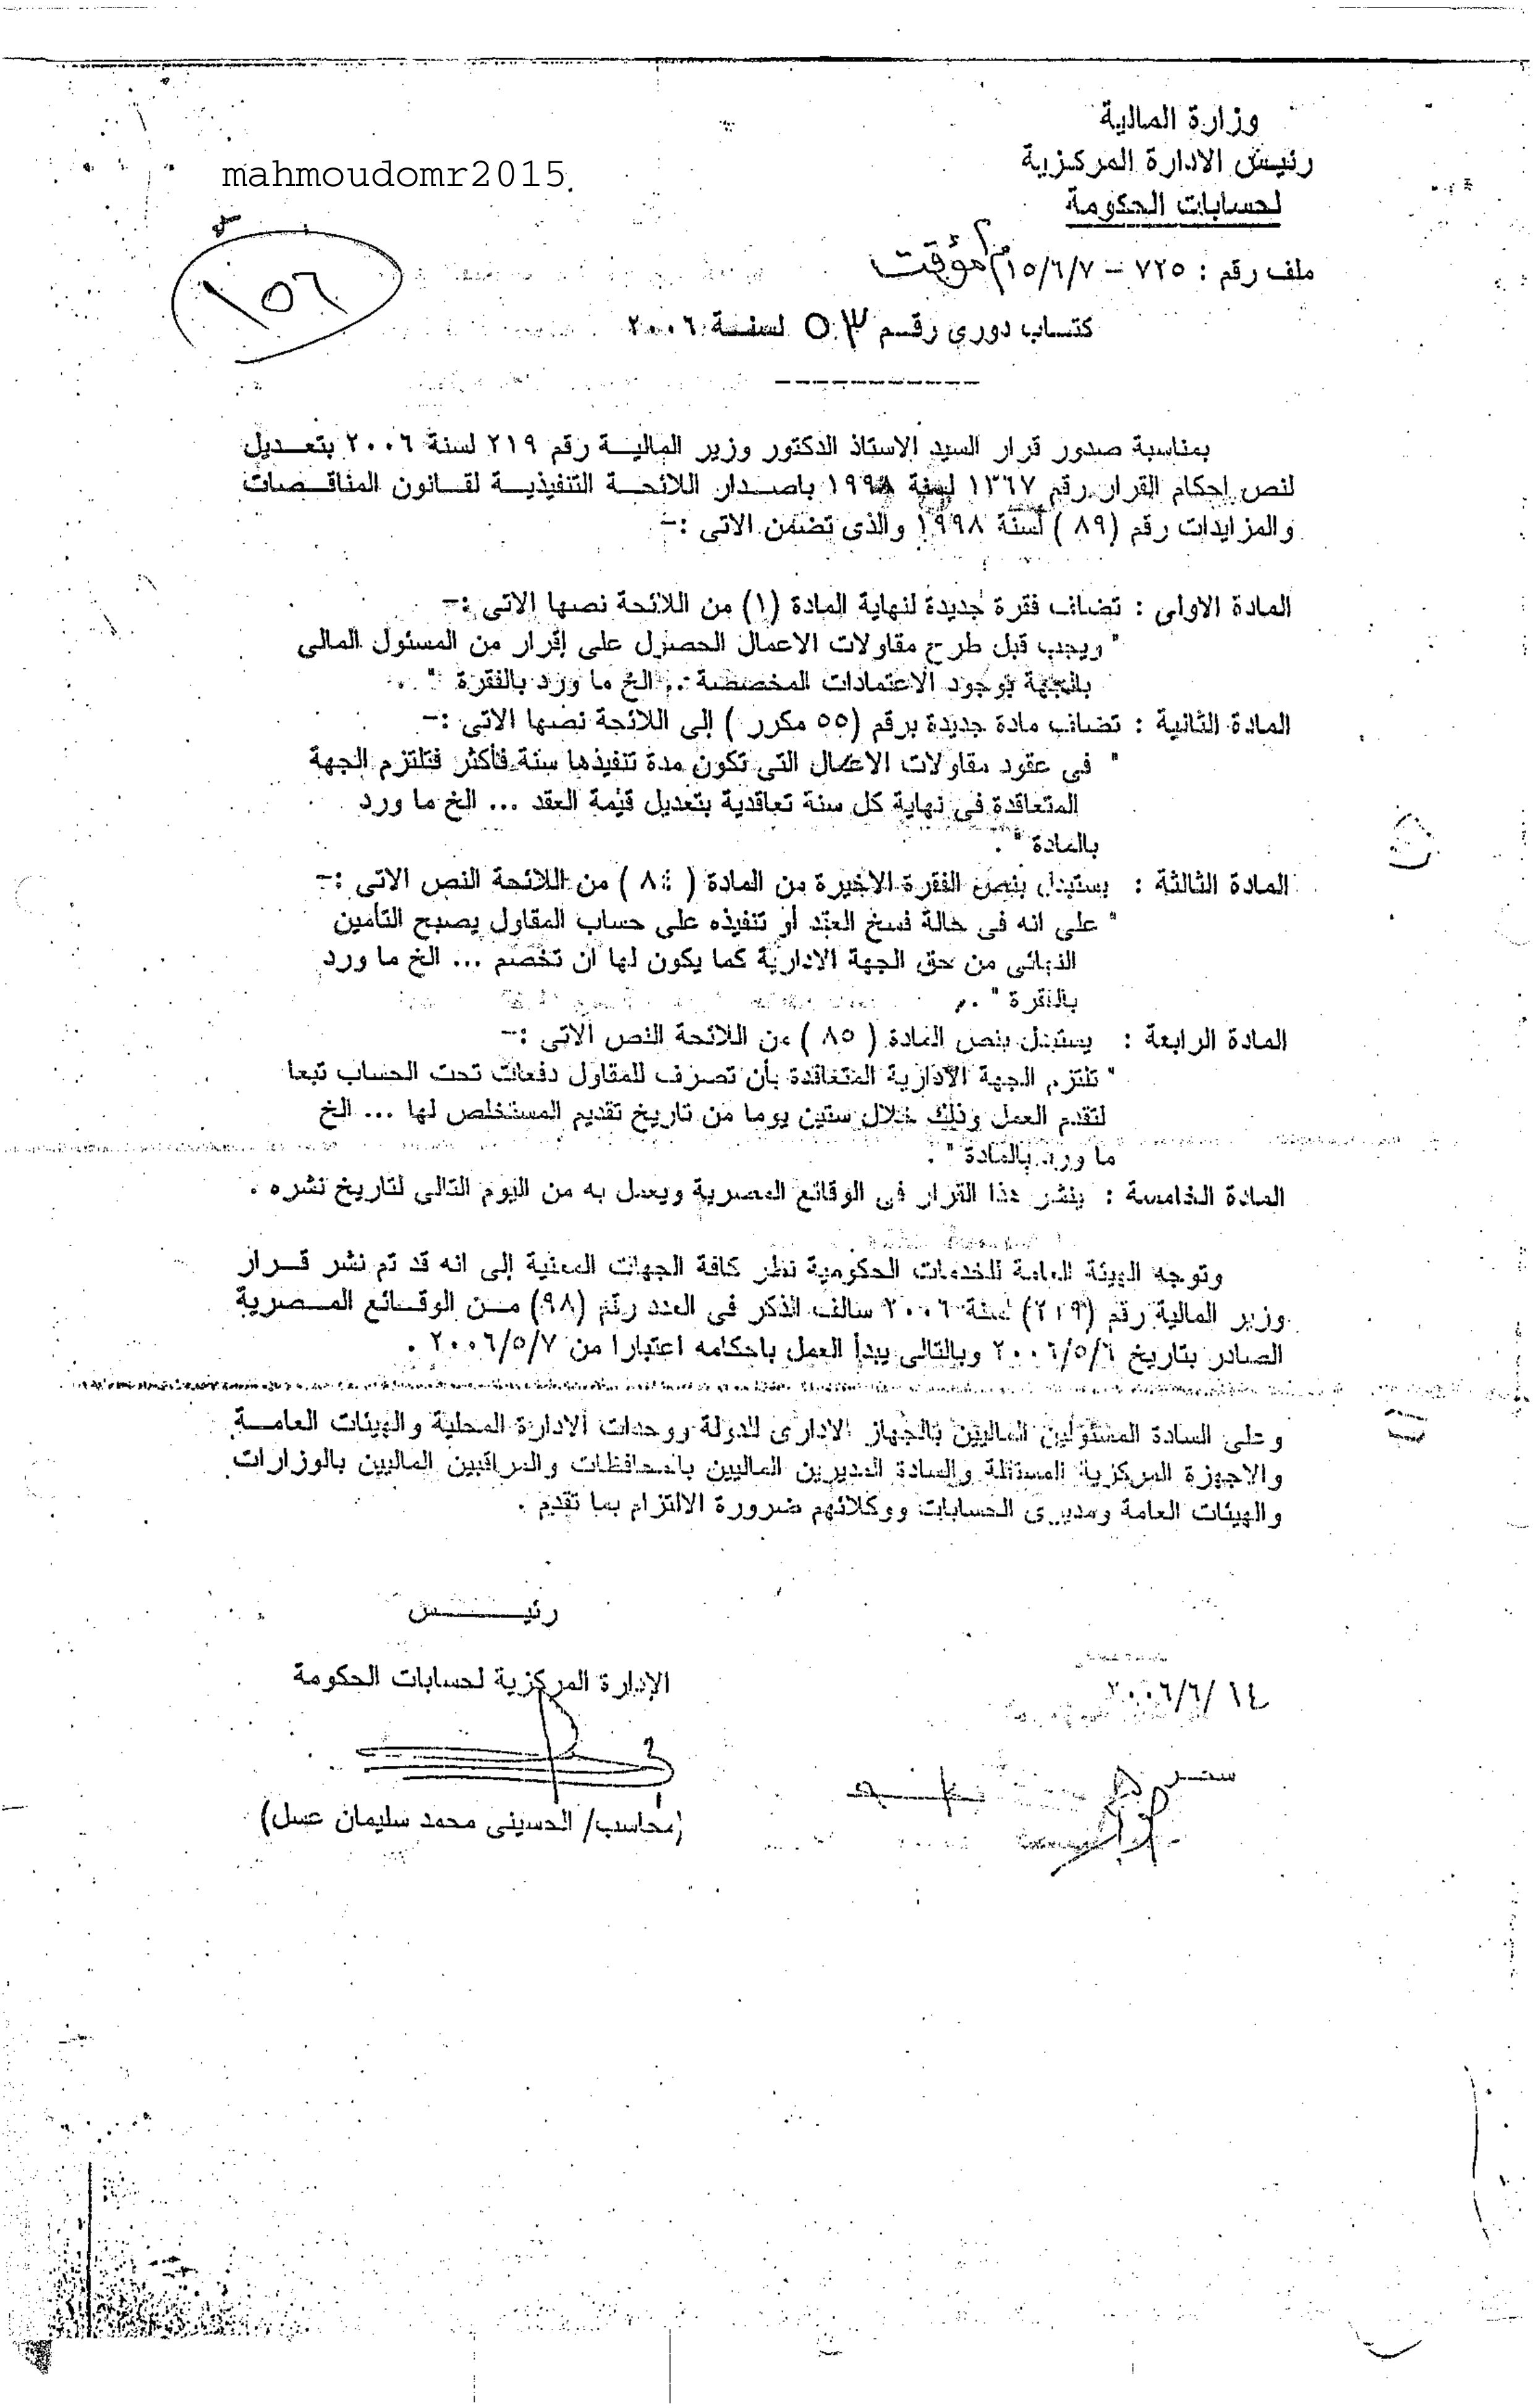 وزارة المالية
رئيس الادارة المركزية
لحسابات الحكومة
mahmoudomr2015
ملف رقم : ٧٢٥ – ١٥/٦/٧م مؤقت
١٥٦
كتاب دورى رقم ٥٣ لسنة ٢٠٠٦
بمناسبة صدور قرار السيد الاستاذ الدكتور وزير المالية رقم ٢١٩ لسنة ٢٠٠٦ بتعديل
لنص احكام القرار رقم ١٣٦٧ لسنة ١٩٩٨ باصدار اللائحة التنفيذية لقانون المناقصات
والمزايدات رقم (٨٩ ) لسنة ١٩٩٨ والذى تضمن الاتى :–
المادة الاولى : تضاف فقرة جديدة لنهاية المادة (١) من اللائحة نصها الاتى :–
" ويجب قبل طرح مقاولات الاعمال الحصول على إقرار من المسئول المالى
بالجهة بوجود الاعتمادات المخصصة .. الخ ما ورد بالفقرة " .
المادة الثانية : تضاف مادة جديدة برقم (٥٥ مكرر ) إلى اللائحة نصها الاتى :–
" فى عقود مقاولات الاعمال التى تكون مدة تنفيذها سنة فأكثر فتلتزم الجهة
المتعاقدة فى نهاية كل سنة تعاقدية بتعديل قيمة العقد ... الخ ما ورد
بالمادة " .
المادة الثالثة : يستبدل بنص الفقرة الاخيرة من المادة ( ٨٤ ) من اللائحة النص الاتى :–
" على انه فى حالة فسخ العقد أو تنفيذه على حساب المقاول يصبح التأمين
النهائى من حق الجهة الادارية كما يكون لها أن تخصم ... الخ ما ورد
بالفقرة " .
المادة الرابعة : يستبدل بنص المادة ( ٨٥ ) من اللائحة النص الاتى :–
" تلتزم الجهة الادارية المتعاقدة بأن تصرف للمقاول دفعات تحت الحساب تبعا
لتقدم العمل وذلك خلال ستين يوما من تاريخ تقديم المستخلص لها ... الخ
ما ورد بالمادة " .
المادة الخامسة : ينشر هذا القرار فى الوقائع المصرية ويعمل به من اليوم التالى لتاريخ نشره .
وتوجه الهيئة العامة للخدمات الحكومية نظر كافة الجهات المعنية إلى انه قد تم نشر قرار
وزير المالية رقم (٢١٩) لسنة ٢٠٠٦ سالف الذكر فى العدد رقم (٩٨) من الوقائع المصرية
الصادر بتاريخ ٢٠٠٦/٥/٦ وبالتالى يبدأ العمل باحكامه اعتبارا من ٢٠٠٦/٥/٧ .
وعلى السادة المسئولين الماليين بالجهاز الادارى للدولة ووحدات الادارة المحلية والهيئات العامة
والاجهزة المركزية المستقلة والسادة المديرين الماليين بالمحافظات والمراقبين الماليين بالوزارات
والهيئات العامة ومديرى الحسابات ووكلائهم ضرورة الالتزام بما تقدم .
رئيس
الإدارة المركزية لحسابات الحكومة
٢٠٠٦/٦/ ١٤
(محاسب/ الحسينى محمد سليمان عسل)